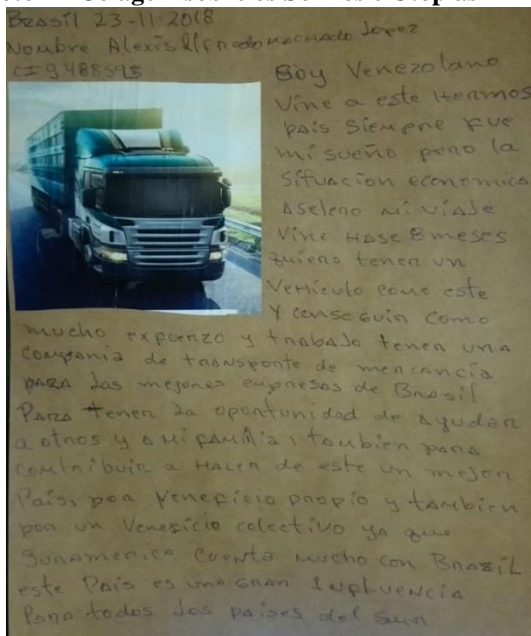 Brasil 23-11-2018
Nombre Alexis Alfredo Machado Lopez
CI 9488595
Soy Venezolano
Vine a este Hermos
pais Siempre fue
mi sueño pero la
Situacion economica
Aselero mi viaje
Vine Hase 8 meses
quiero tener un
Vehiculo como este
Y conseguir como
mucho expuerzo y trabajo tener una
Compania de transporte de mercancia
para las mejores empresas de Brasil
Para tener la oportunidad de ayudar
a otros y a mi familia, tambien para
contribuir a Hacer de este un mejor
Pais, por Veneficio propio y tambien
por un Veneficio colectivo ya que
Suramerica Cuenta mucho con Brasil
este Pais es una Gran Influencia
Para todos los paises del Sur